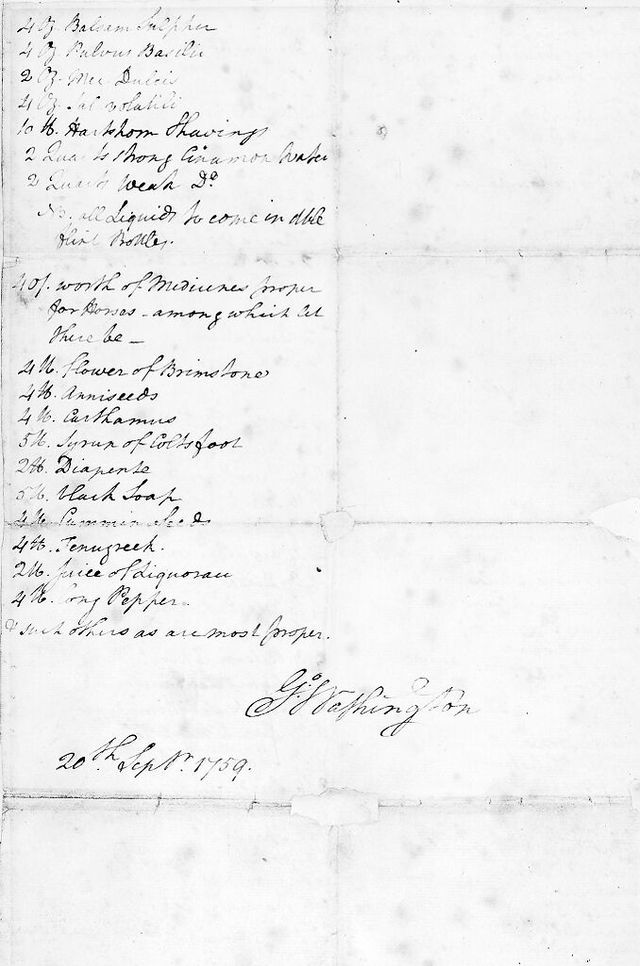 4 Oz. Balsam Sulpher
4 Oz. Pulvus Basilic
2 Oz. Mer Dulcis
4 Oz. Sal volatile
10 lb. Hartshorn Shavings
2 Quarts strong Cinamon Water
2 Quarts weak Do
Nb. all Liquids to come in dble
flint Bottles.
40/. worth of Medicines proper
for Horses - among which let
there be —
4 lb. flower of Brimstone
4 lb. Anniseeds
4 lb. Carthamus
5 lb. Syrup of Coltsfoot
2 lb. Diapente
5 lb. black Soap
4 lb. Cummin Seeds
4 lb. Fenugreek.
2 lb. Juice of Liquorau
4 lb. Long Pepper
& such others as are most proper.
Go Washington
20th Septr. 1759.